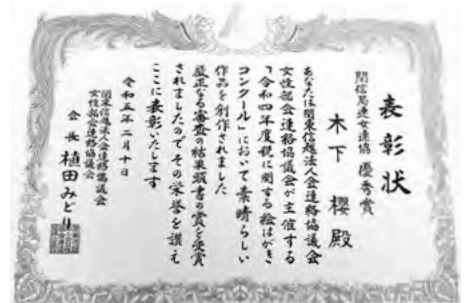 表彰状
関信局連女連協 優秀賞
木下 櫻 殿
あなたは関東信越法人会連絡協議会
女性部会連絡協議会が主催する
「令和四年度税に関する絵はがき
コンクール」において素晴らしい
作品を創作されました
厳正なる審査の結果頭書の賞を受賞
されましたのでその栄誉を讃え
ここに表彰いたします
令和五年二月十日
関東信越法人会連絡協議会
女性部会連絡協議会
会長 植田みどり